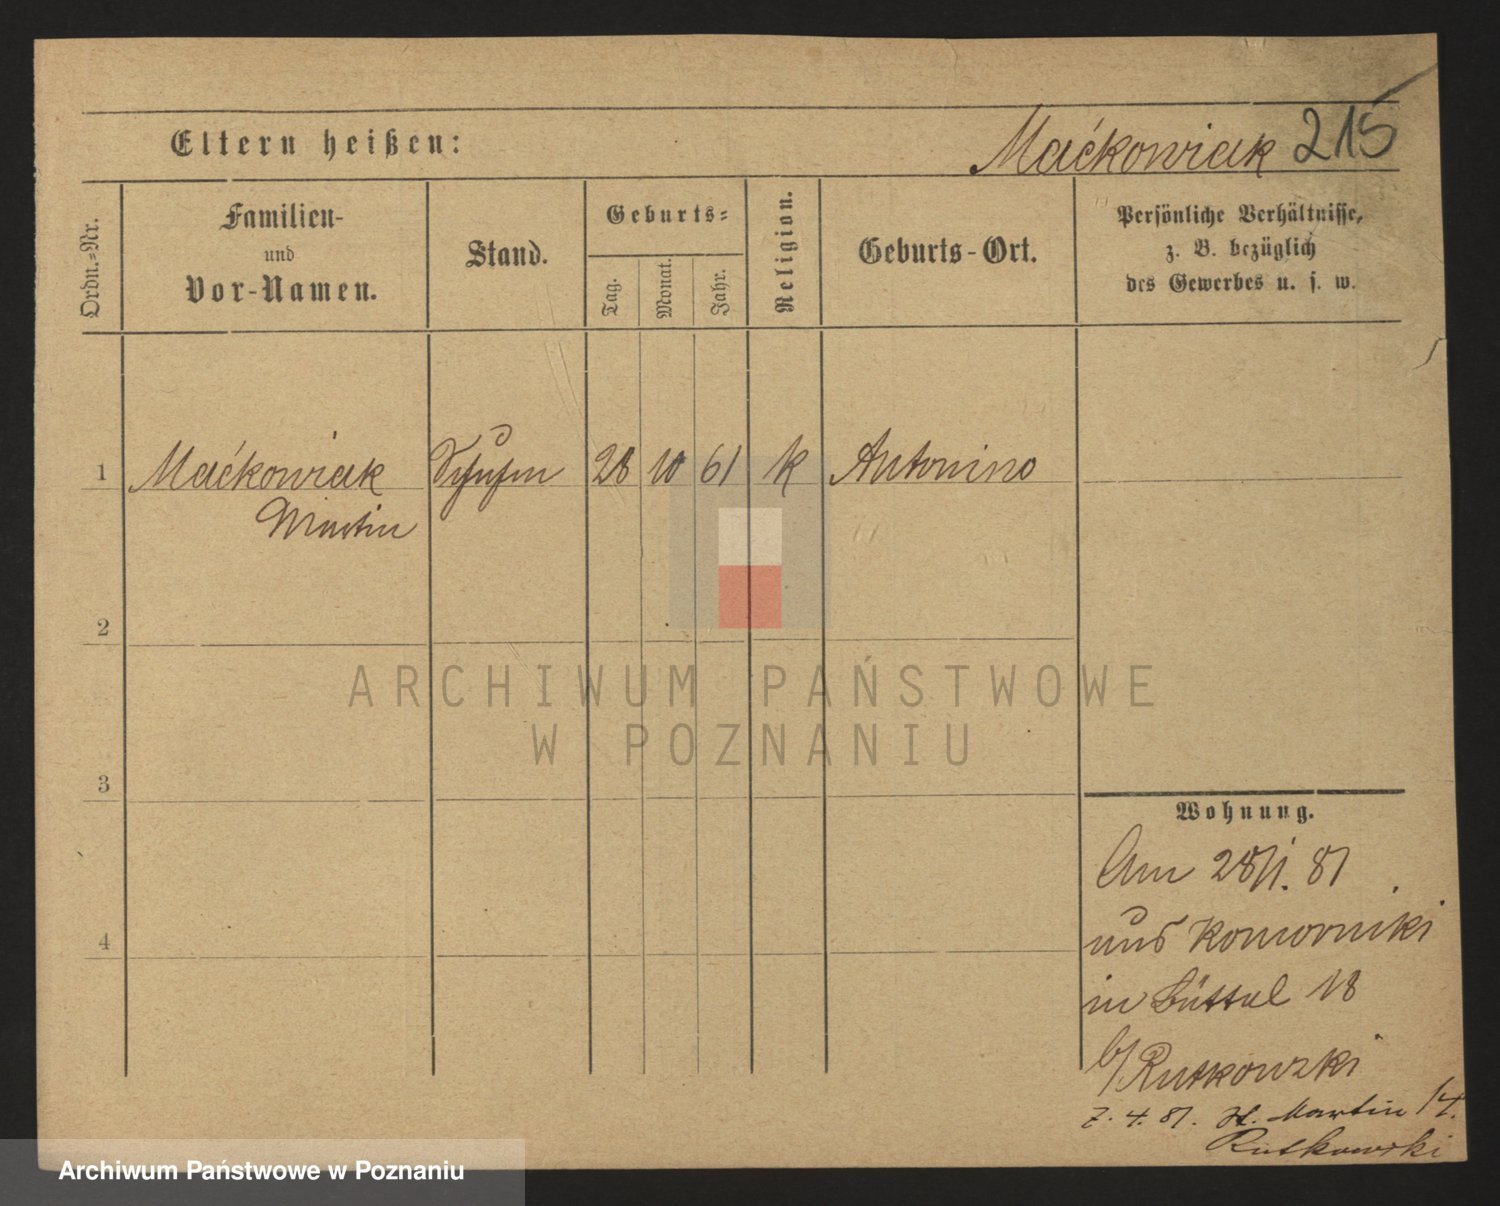 Eltern heißen:
Maćkowiak 215
Ordn.=Nr.
Familien-
und
Vor-Namen.
Stand.
Geburts=
Tag.
Monat.
Jahr.
Religion.
Geburts-Ort.
Persönliche Verhältnisse,
z. B. bezüglich
des Gewerbes u. s. w.
1 Maćkowiak 28 10 61 k Antonino
Martin
2
ARCHIWUM PAŃSTWOWE
W POZNANIU
3
Wohnung.
Am 28/1. 81
aus Komorniki
in Büttel 18
b/ Rutkowski
4
7. 4. 81. St. Martin 14.
Rutkowski
Archiwum Państwowe w Poznaniu